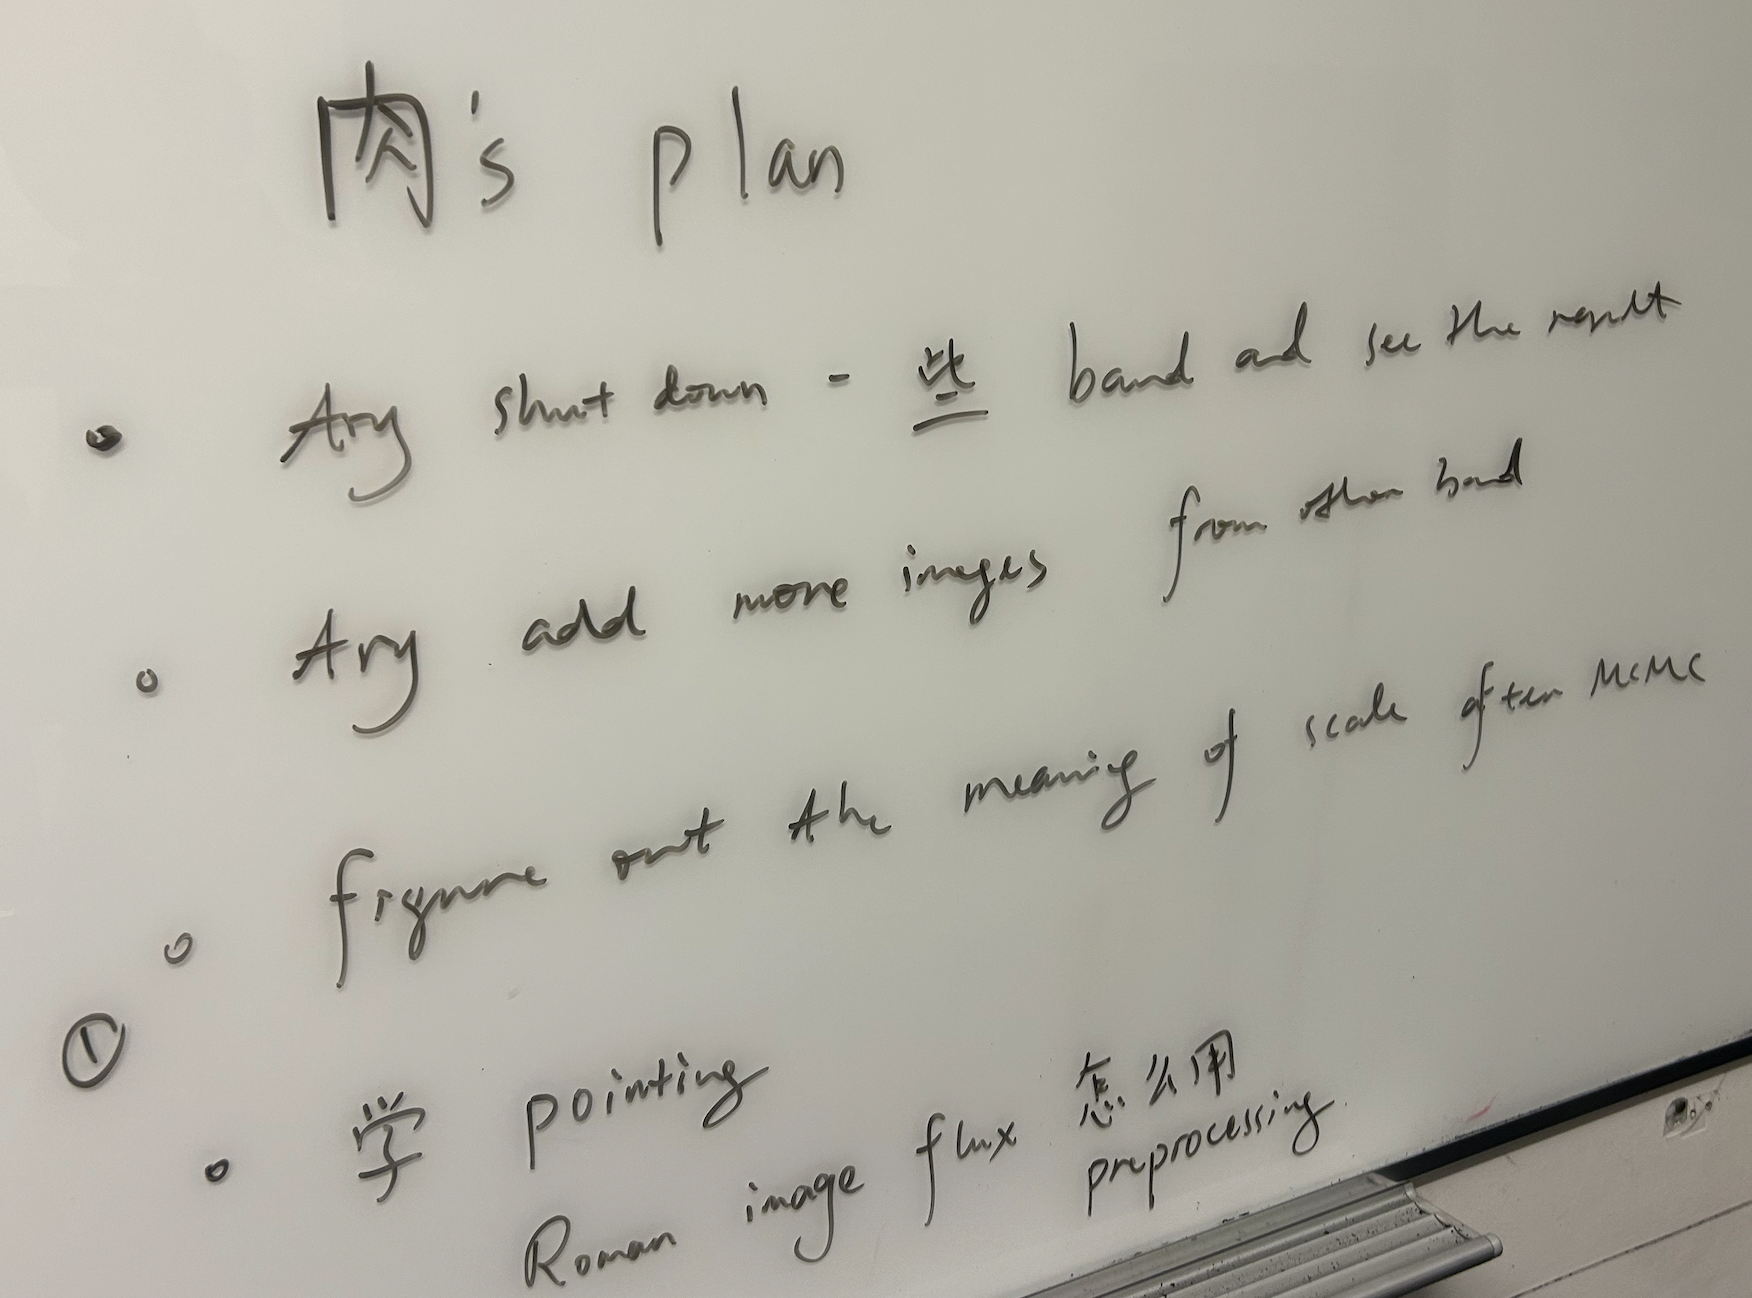 肉's plan
• Try shut down 一些 band and see the result
◦ Try add more images from other band
◦ figure out the meaning of scale after MCMC
①
◦ 学 pointing
Roman image flux 怎么用
preprocessing